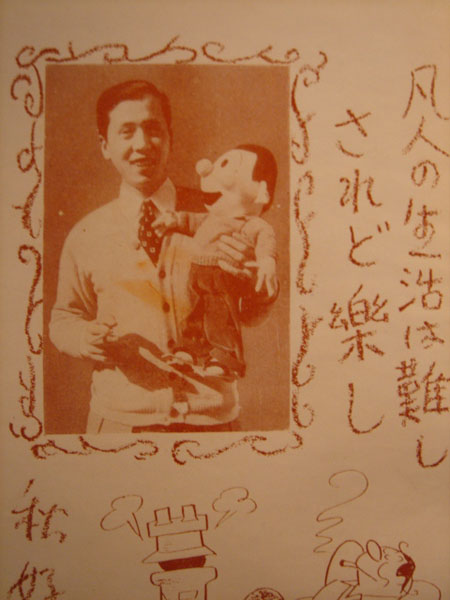 凡人の生活は難し
されど樂し
私